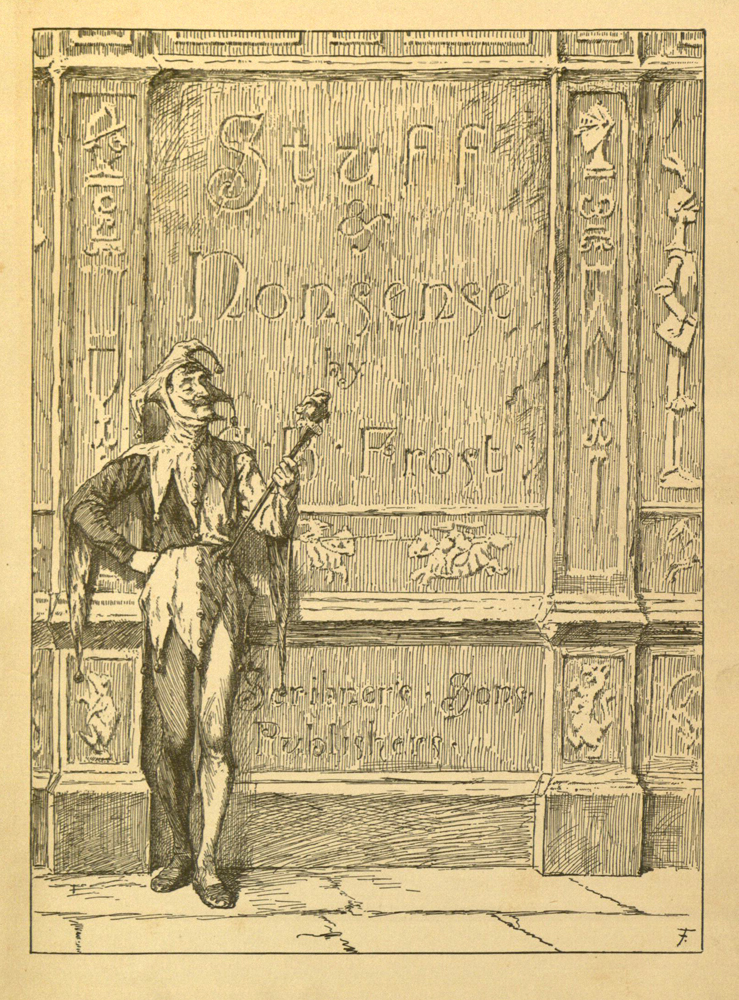 Stuff
&
Nonsense
by
B. Frost.
Scribner's. Sons.
Publishers.
F.